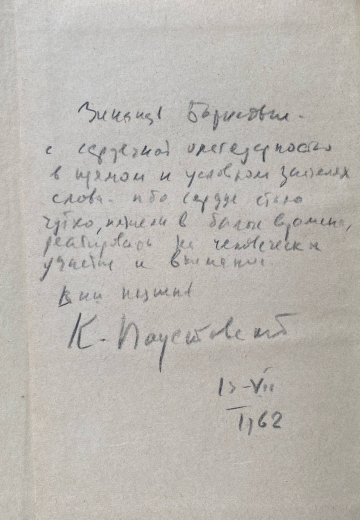 Зинаиде Борисовне.
с сердечной благодарностью
в прямом и условном значениях
слова. ибо сердце стало
чутко, нежели в былые времена,
реагировать на человеческое
участие и внимание.
К. Паустовский
1962